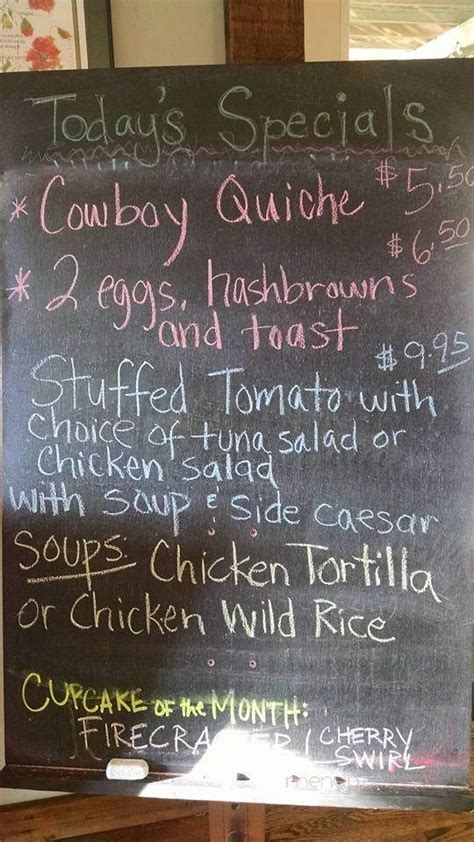 Today's Specials
* Cowboy Quiche $5.50
$6.50
* 2 eggs, hashbrowns
and toast
$9.95
Stuffed Tomato with
choice of tuna salad or
chicken salad
with soup & side caesar
Soups: Chicken Tortilla
or Chicken Wild Rice
CUPCAKE of the MONTH:
CHERRY
SWIRL